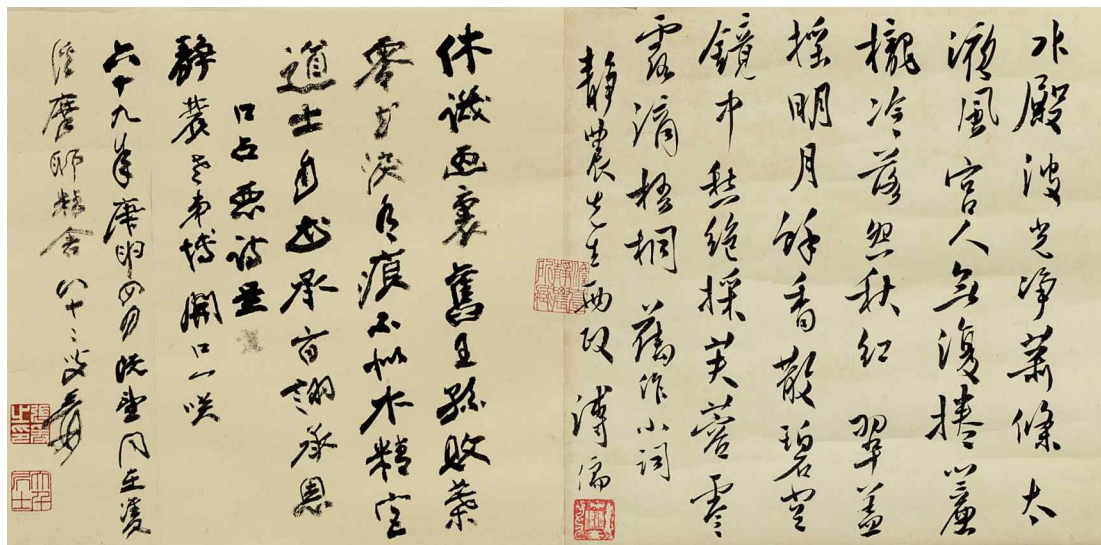 水殿波光净蕭條太
液風宮人無復捲簾
櫳冷落怨秋紅 翠蓋
搖明月 餘香散碧空
鏡中愁絕採芙蓉零
露滴梧桐 舊作小詞
静農先生兩政 溥儒
休譏画裏舊王孫敗葉
零 淡有痕不似水精宮
道士自 承旨詡承恩
口占惡詩呈
静農老弟博開口一咲
六十九年庚申四月既望同在雙
溪摩耶精舍 八十二叟爰